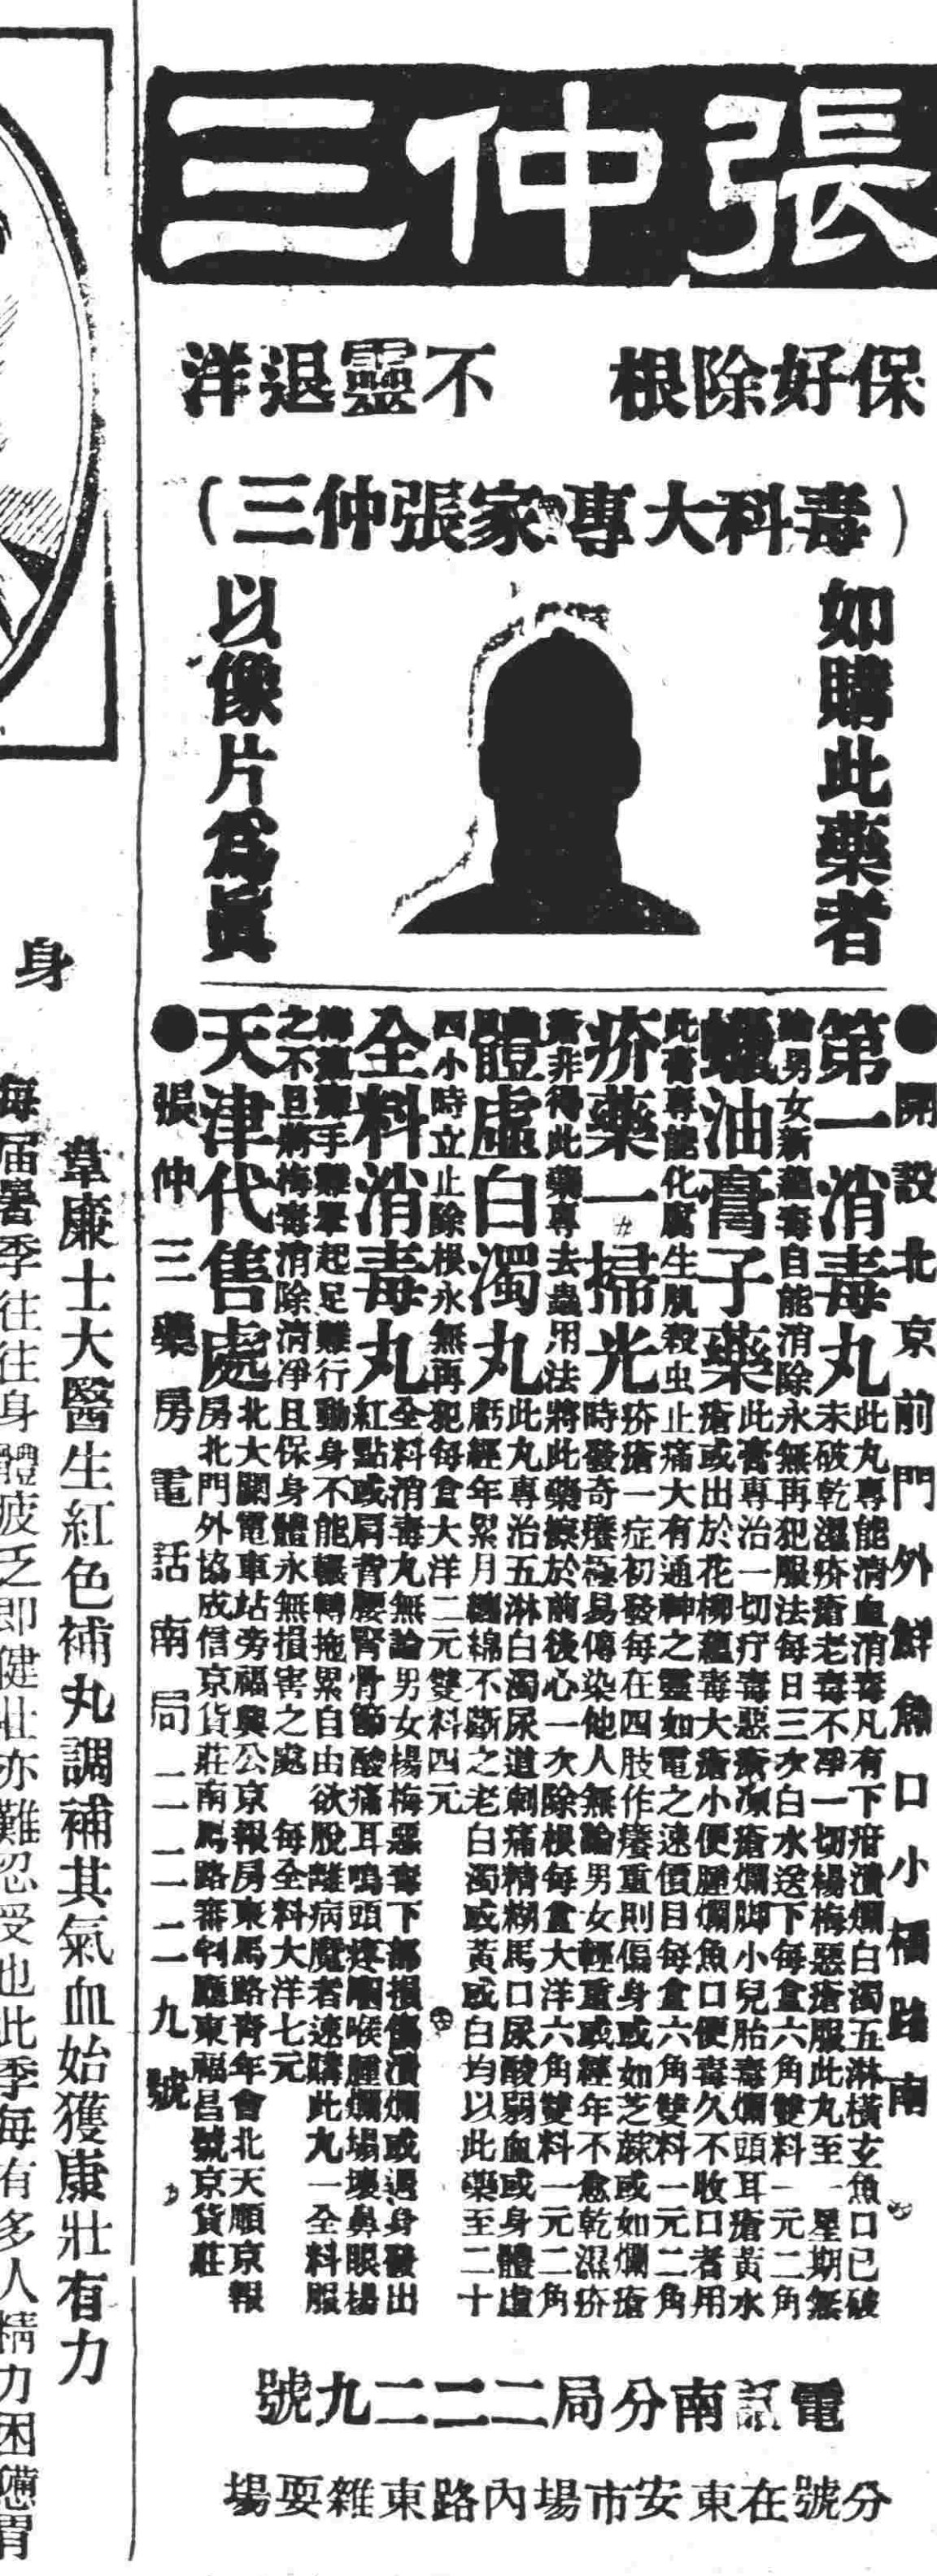 張仲三
保好除根　不靈退洋
（毒科大專家張仲三）
如購此藥者
以像片爲眞
●開設北京前門外鮮魚口小橋路南
第一消毒丸
此丸專能清血消毒凡有下疳潰爛白濁五淋橫玄魚口已破
未破乾濕疥瘡老毒不淨一切楊梅惡瘡服此丸至一星期無
論男女新蘊毒自能消除永無再犯服法每日三次白水送下每盒六角雙料一元二角
蠟油膏子藥
此膏專治一切疔毒惡瘡凍瘡爛脚小兒胎毒爛頭耳瘡黃水
瘡或出於花柳蘊毒大瘡小便腫爛魚口便毒久不收口者用
此膏專能化腐生肌殺虫止痛大有通神之靈如電之速價目每盒六角雙料一元二角
疥藥一掃光
疥瘡一症初發每在四肢作癢重則偏身或如芝蔴或如爛瘡
時發奇癢極易傳染他人無論男女輕重或經年不愈乾濕疥
瘡非得此藥專去蟲用法將此藥擦於前後心一次除根每盒大洋六角雙料一元二角
體虛白濁丸
此丸專治五淋白濁尿道刺痛精糊馬口尿酸弱血或身體虛
虧經年累月纏綿不斷之老白濁或黃或白均以此藥至二十
四小時立止除根永無再犯每盒大洋二元雙料四元
全料消毒丸
全料消毒丸無論男女楊梅惡毒下部損傷潰爛或週身發出
紅點或肩背腰腎骨節酸痛耳鳴頭疼咽喉腫爛塌壞鼻眼楊
手難舉起足難行動身不能輾轉拖累自由欲脫離病魔者速購此丸一全料服
之不且將梅毒消除清凈且保身體永無損害之處　每全料大洋七元
天津代售處
北大關電車站旁福興公京報房東馬路青年會北天順京報
房北門外協成信京貨莊南馬路審判廳東福昌號京貨莊
●張仲三藥房電話南局二二二九號
電話南分局二二二九號
分號在東安市場內路東雜耍場
身
韋廉士大醫生紅色補丸調補其氣血始獲康壯有力
每届暑季往往身體疲乏即健壯亦難忍受也此季每有多人精力困憊謂